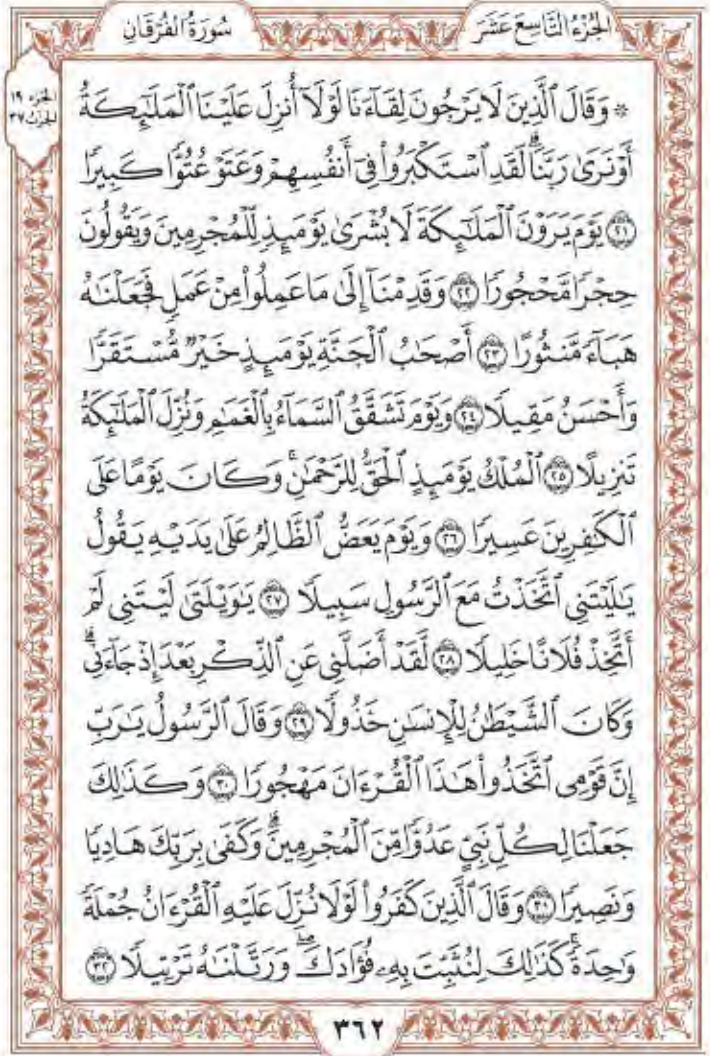 الجُزْءُ التَّاسِعَ عَشَرَ
سُورَةُ الفُرْقَانِ
الجزء ١٩
الحزب ٣٧
۞ وَقَالَ ٱلَّذِينَ لَا يَرۡجُونَ لِقَآءَنَا لَوۡلَآ أُنزِلَ عَلَيۡنَا ٱلۡمَلَٰٓئِكَةُ
أَوۡ نَرَىٰ رَبَّنَاۗ لَقَدِ ٱسۡتَكۡبَرُواْ فِيٓ أَنفُسِهِمۡ وَعَتَوۡ عُتُوّٗا كَبِيرٗا
٢١ يَوۡمَ يَرَوۡنَ ٱلۡمَلَٰٓئِكَةَ لَا بُشۡرَىٰ يَوۡمَئِذٖ لِّلۡمُجۡرِمِينَ وَيَقُولُونَ
حِجۡرٗا مَّحۡجُورٗا ٢٢ وَقَدِمۡنَآ إِلَىٰ مَا عَمِلُواْ مِنۡ عَمَلٖ فَجَعَلۡنَٰهُ
هَبَآءٗ مَّنثُورًا ٢٣ أَصۡحَٰبُ ٱلۡجَنَّةِ يَوۡمَئِذٍ خَيۡرٞ مُّسۡتَقَرّٗا
وَأَحۡسَنُ مَقِيلٗا ٢٤ وَيَوۡمَ تَشَقَّقُ ٱلسَّمَآءُ بِٱلۡغَمَٰمِ وَنُزِّلَ ٱلۡمَلَٰٓئِكَةُ
تَنزِيلًا ٢٥ ٱلۡمُلۡكُ يَوۡمَئِذٍ ٱلۡحَقُّ لِلرَّحۡمَٰنِۚ وَكَانَ يَوۡمًا عَلَى
ٱلۡكَٰفِرِينَ عَسِيرٗا ٢٦ وَيَوۡمَ يَعَضُّ ٱلظَّالِمُ عَلَىٰ يَدَيۡهِ يَقُولُ
يَٰلَيۡتَنِي ٱتَّخَذۡتُ مَعَ ٱلرَّسُولِ سَبِيلٗا ٢٧ يَٰوَيۡلَتَىٰ لَيۡتَنِي لَمۡ
أَتَّخِذۡ فُلَانًا خَلِيلٗا ٢٨ لَّقَدۡ أَضَلَّنِي عَنِ ٱلذِّكۡرِ بَعۡدَ إِذۡ جَآءَنِيۗ
وَكَانَ ٱلشَّيۡطَٰنُ لِلۡإِنسَٰنِ خَذُولٗا ٢٩ وَقَالَ ٱلرَّسُولُ يَٰرَبِّ
إِنَّ قَوۡمِي ٱتَّخَذُواْ هَٰذَا ٱلۡقُرۡءَانَ مَهۡجُورٗا ٣٠ وَكَذَٰلِكَ
جَعَلۡنَا لِكُلِّ نَبِيٍّ عَدُوّٗا مِّنَ ٱلۡمُجۡرِمِينَۗ وَكَفَىٰ بِرَبِّكَ هَادِيٗا
وَنَصِيرٗا ٣١ وَقَالَ ٱلَّذِينَ كَفَرُواْ لَوۡلَا نُزِّلَ عَلَيۡهِ ٱلۡقُرۡءَانُ جُمۡلَةٗ
وَٰحِدَةٗۚ كَذَٰلِكَ لِنُثَبِّتَ بِهِۦ فُؤَادَكَۖ وَرَتَّلۡنَٰهُ تَرۡتِيلٗا ٣٢
٣٦٢